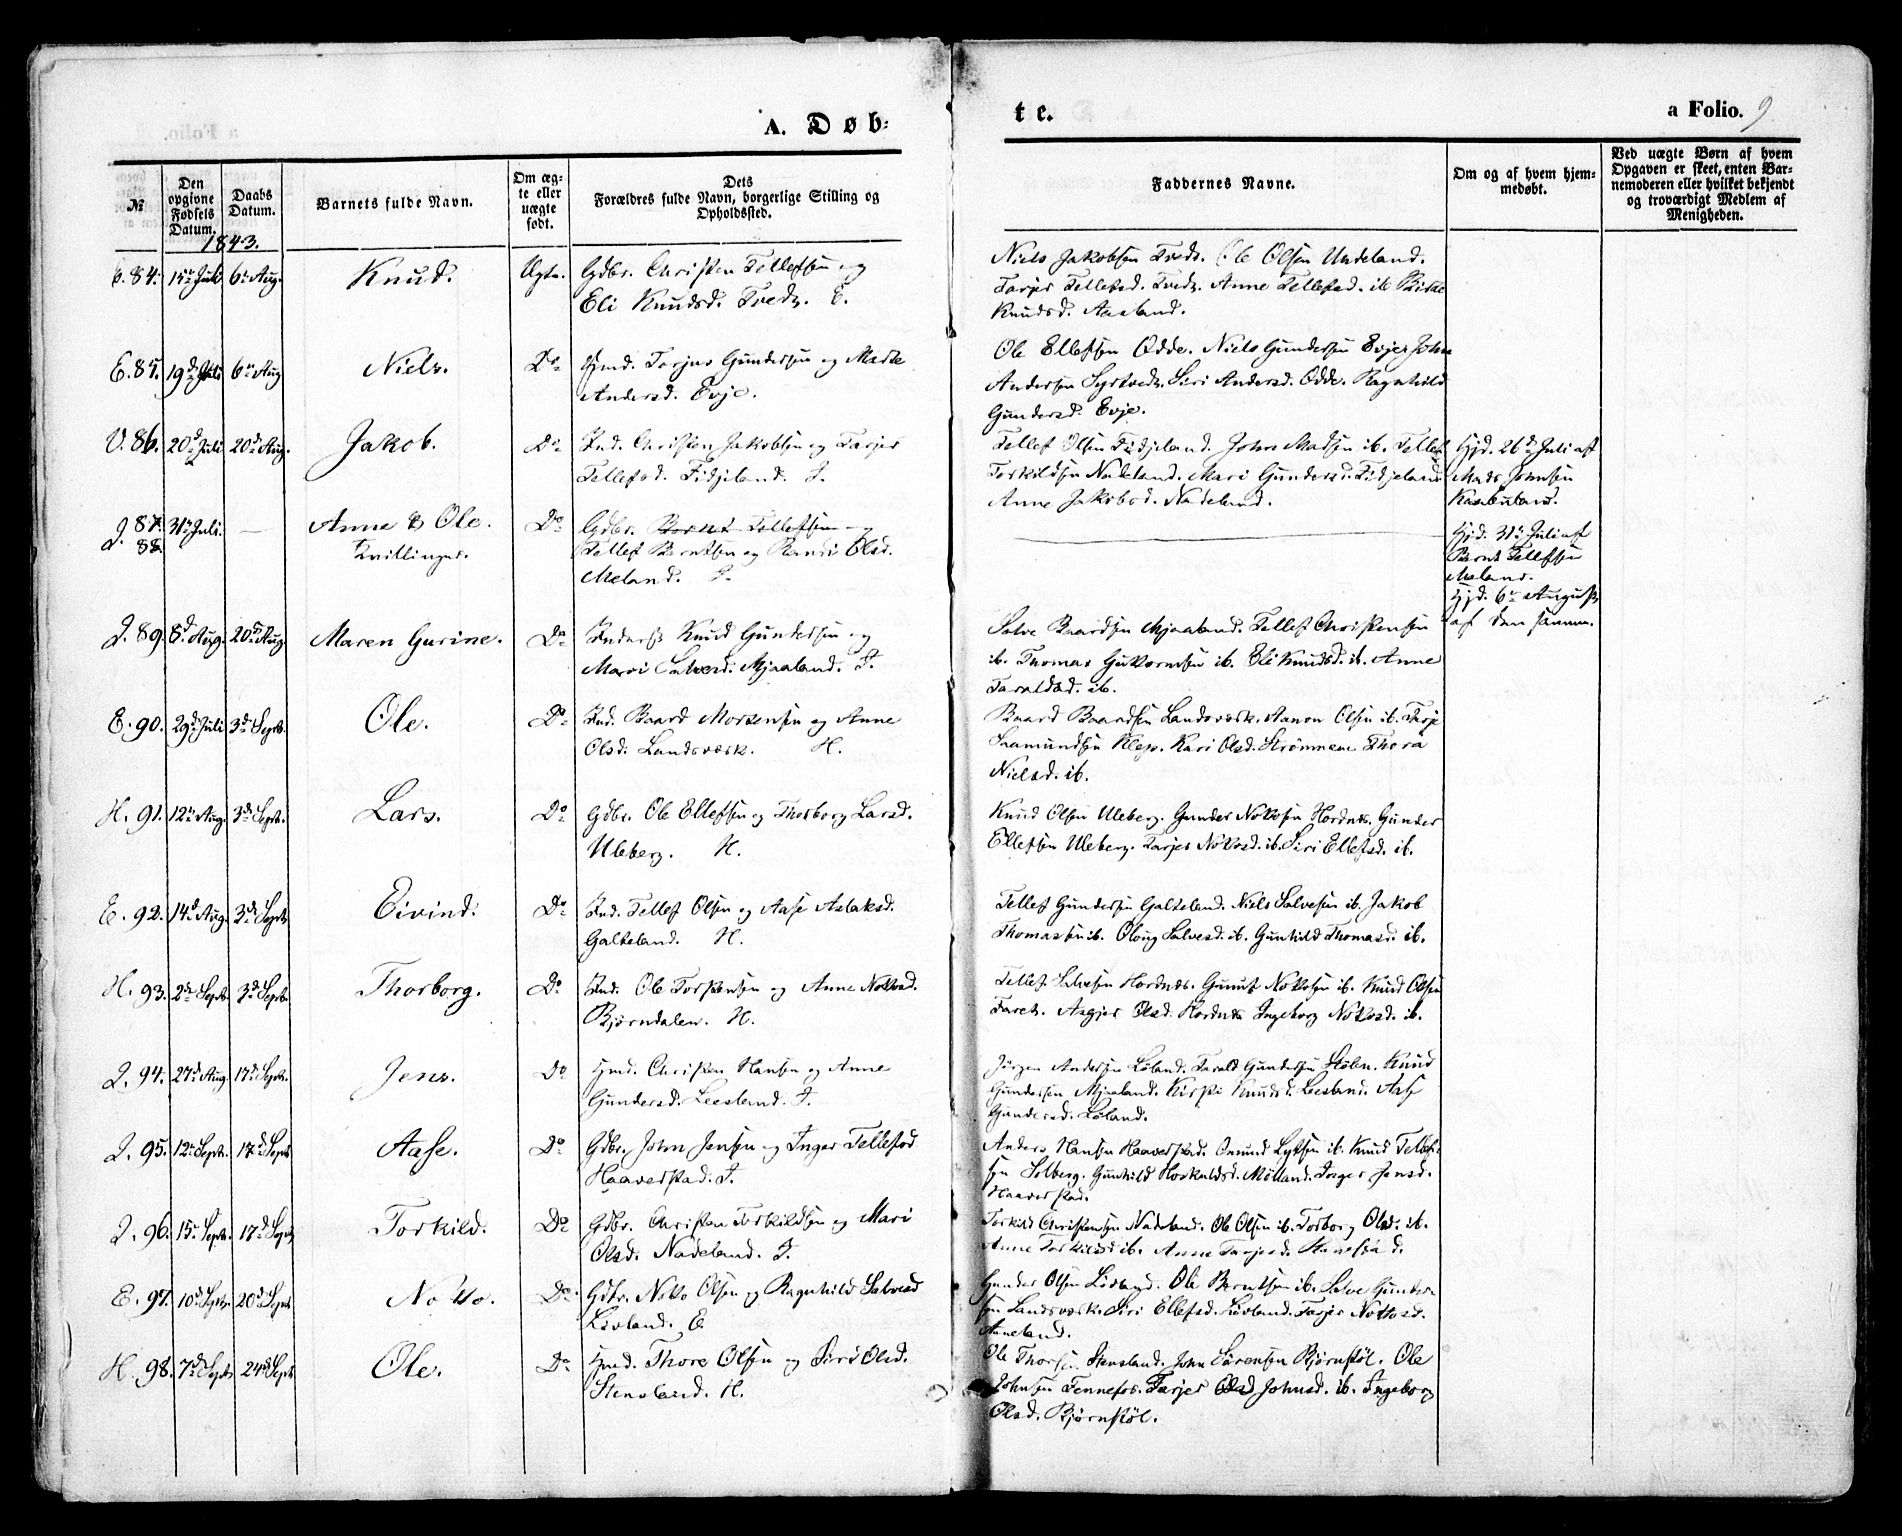 A. Døb-
te.
a Folio. 9
№
Den opgivne Fødsels Datum.
Daabs Datum.
Barnets fulde Navn.
Om ægte eller uægte født.
Dets Forældres fulde Navn, borgerlige Stilling og Opholdssted.
Faddernes Navne.
Om og af hvem hjemmedøbt.
Ved uægte Børn af hvem Opgaven er skeet, enten Barnemoderen eller hvilket bekjendt og troværdigt Medlem af Menigheden.
1843.
E. 84. 15de Juli 6te Aug. Knud. Ægte. Gdbr. Christen Tellefsen og
Eli Knudsd. Tvedt. E.
Niels Jakobsen Tvedt. Ole Olsen Undeland.
Tarjer Tellefsd. Tvedt. Anne Tellefsd. ib
Knudsd. Aasland.
E. 85. 19de Juli 6te Aug Niels. Do Hmd. Torjus Gundersen og Marte
Andersd. Evje.
Ole Ellefsen Odde. Niels Gundersen Evje. John
Andersen Syrtvedt. Siri Andersd. Odde. Ragnhild
Gundersd. Evje.
V. 86. 20de Juli 20de Aug. Jakob. Do Ind. Christen Jakobsen og Tarjer
Tellefsd. Fidjeland. I.
Tellef Olsen Fidjeland. John Madsen ib. Tellef
Torkildsen Nadeland. Mari Gundersd. Fidjeland
Anne Jakobsd. Nadeland.
Hjd. 26de Juli af
Mads Johnsen
I. 87. 88. 31te Juli. — Anne & Ole. Do Gdbr. Bernt Tellefsen og
Tvillinger.
Tellef Berntsen og Randi Olsd.
Meland. I.
Hjd. 31te Juli af
Bernt Tellefsen
Meland.
Hjd. 6te August
af den samme.
I. 89. 8de Aug. 20de Aug. Maren Gurine. Do Inderst Knud Gundersen og
Mari Salvesd. Mjaaland. I.
Salve Baardsen Mjaaland. Tellef Christensen
ib. Thomas Guttormsen ib. Eli Knudsd. ib. Anne
Taraldsd. ib.
E. 90. 29de Juli 3de Septb. Ole. Do Ind. Baard Mortensen og Anne
Olsd. Landsværk. H.
Baard Baardsen Landsværk. Aanon Olsen ib. Terje
Saamundsen Klep. Kari Olsd. Strömmen Thora
Nielsd. ib.
H. 91. 12te Aug. 3de Septb. Lars. Do Gdbr. Ole Ellefsen og Thorborg Larsd.
Uleberg. H.
Knud Olsen Uleberg. Gunder Nottosen Hordnes. Gunder
Ellefsen Uleberg. Tarjer Nottosd. ib. Siri Ellefsd. ib.
E. 92. 14de Aug. 3de Septb. Eivind. Do Ind. Tellef Olsen og Aase Aslaksd.
Galteland. H.
Tellef Gundersen Galteland. Niels Salvesen ib. Jakob
Thomassen ib. Oloug Salvesd. ib. Gunhild Thomasd. ib.
H. 93. 2den Septb. 3de Septb. Thorborg. Do Ind. Ole Torstensen og Anne Nottosd.
Bjørndalen. H.
Tellef Salvesen Hordnes. Gunuf Nottosen ib. Knud Olsen
Faret. Asgjer Olsd. Hordnes Ingeborg Nottosd. ib.
I. 94. 27de Aug. 17de Septb. Jens. Do Hmd. Christen Hansen og Anne
Gundersd. Leesland. I.
Jörgen Andersen Löland. Tarald Gundersen Stölen. Knud
Gundersen Mjaaland. Kirsti Knudsd. Leesland. Aase
Gundersd. Löland.
I. 95. 12te Septb. 17de Septb Aase. Do Gdbr. John Jensen og Inger Tellefsd
Haaverstad. I.
Anders Hansen Haaverstad. Omund Lytsen ib. Knud Tellef-
sen Solberg. Gunhild Hoskuldsd. Mölland. Inger Jensd.
Haaverstad.
I. 96. 15de Septb. 17de Septb Torkild. Do Gdbr. Christen Torkildsen og Mari
Olsd. Nadeland. I.
Torkild Christensen Nadeland. Ole Olsen ib. Torborg Olsd. ib.
Anne Torkildsd ib. Anne Tarjesd.
E. 97. 10de Septb. 20de Septb Notto. Do Gdbr. Notto Olsen og Ragnhild Salvesd
Livland. E.
Gunder Olsen Ole Berntsen ib. Salve Gunder-
sen Landsværk. Siri Ellefsd. Tarjer Nottosd.
H. 98. 7de Septb 24de Septb Ole. Do Hmd. Thore Olsen og Siri Olsd.
Stensland. H.
Ole Thorsen Stensland. John Sörensen Björnstöl. Ole
Johnsen Fennefos. Tarjer Johnsd. ib. Ingeborg
Olsd. Björnstöl.